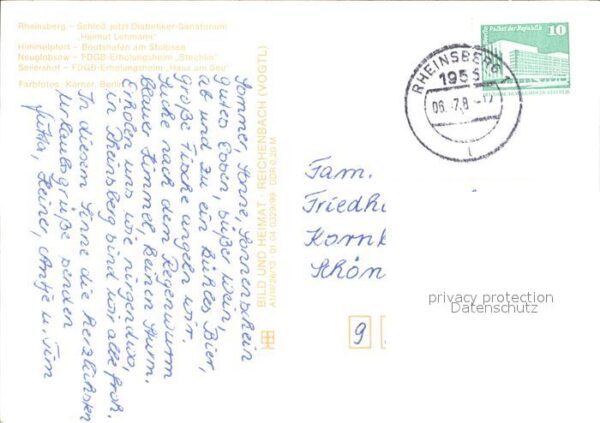 Rheinsberg – Schloß, jetzt Diabetiker-Sanatorium
„Helmut Lehmann"
Himmelpfort – Bootshafen am Stolpsee
Neuglobsow – FDGB-Erholungsheim „Stechlin"
Seilershof – FDGB-Erholungsheim „Haus am See"
Farbfotos: Karner, Berlin
Sommer, Sonne, Sonnenschein
gutes Essen, süßer Wein,
ab und zu ein kühles Bier,
große Fische angeln wir.
Suche nach dem Regenwurm
blauer Himmel, keinen Sturm.
Erholen uns wie nirgendwo,
in Rheinsberg sind wir alle froh.
In diesem Sinne die herzlichsten
Urlaubsgrüße senden
Jutta, Heiner, Antje u. Tim
BILD UND HEIMAT · REICHENBACH (VOGTL)
DDR 0,20 M
10
Palast der Republik
RHEINSBERG
1955
06. 7.8
Fam.
Friedh
Kornk
Schön
9
privacy protection
Datenschutz